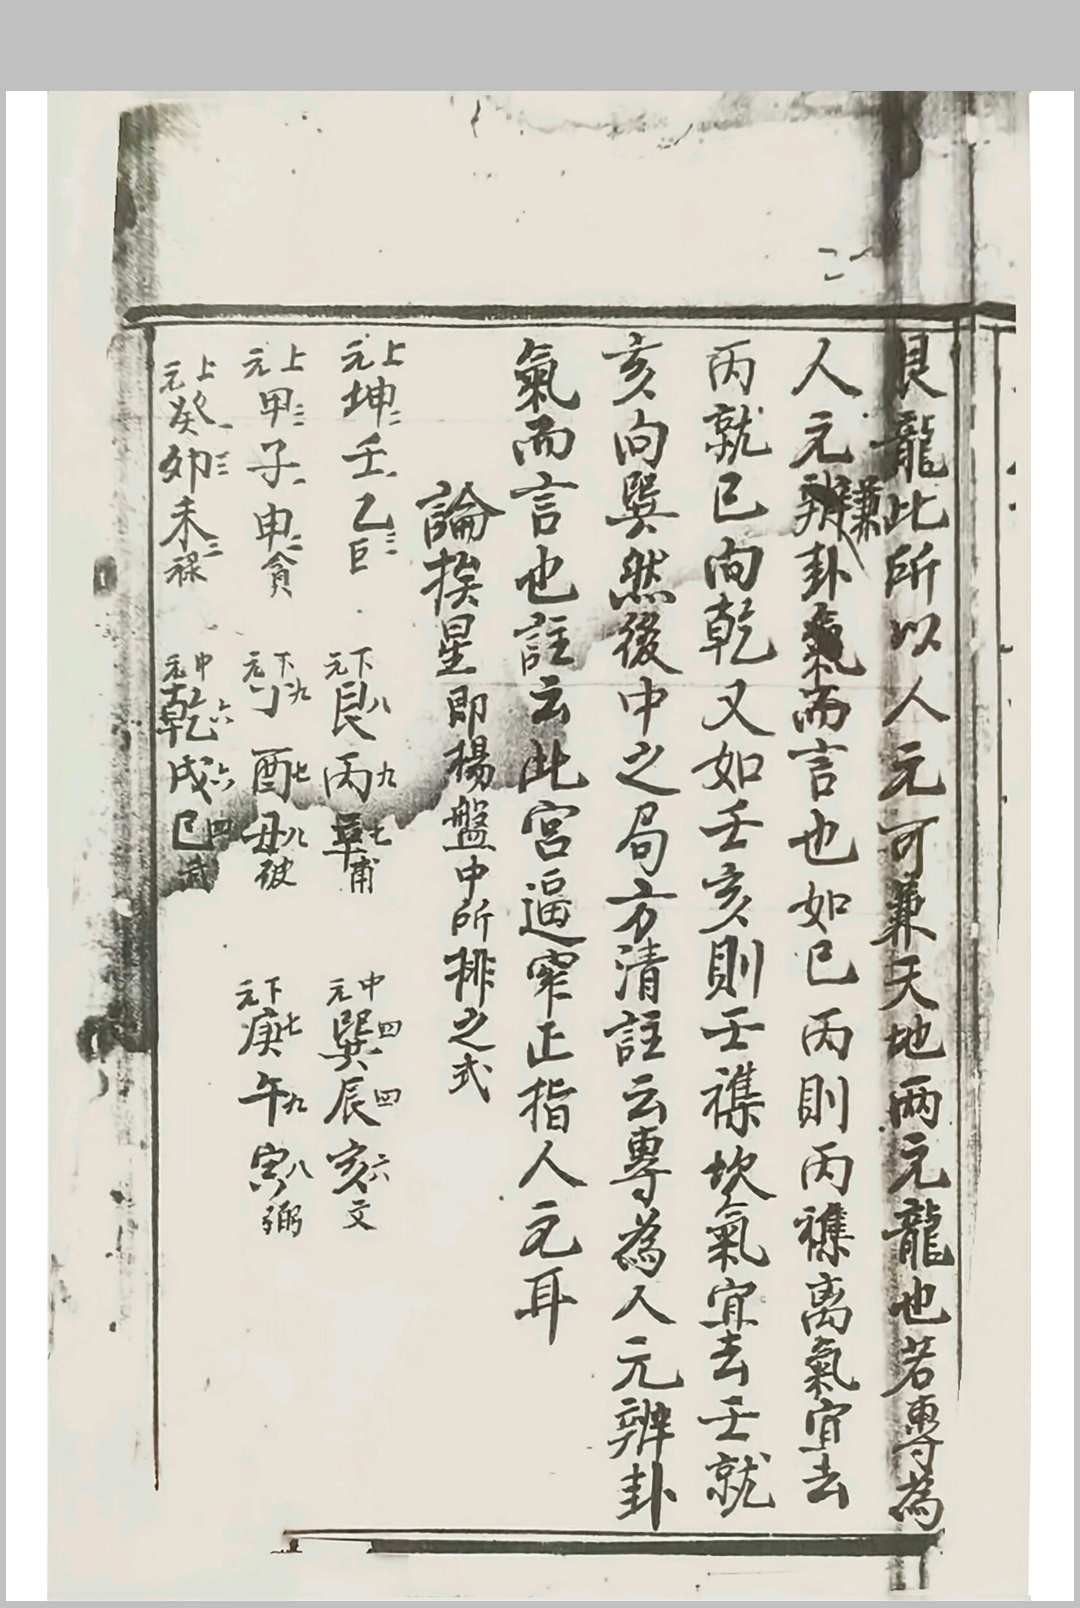 艮龍此所以人元可兼天地兩元龍也若專為
人元辨兼卦氣而言也如巳丙則丙襍离氣宜去
丙就巳向乾又如壬亥則壬襍坎氣宜去壬就
亥向巽然後中之局方清註云專為人元辨卦
氣而言也註云此宮逼窄正指人元耳
論挨星即楊盤中所排之式
上元坤二壬一乙三巨
下元艮八丙九辛七甫
中元巽四辰四亥六文
上元甲三子一申二貪
下元丁九酉七丑八彼
下元庚七午九寅八弼
上元癸一卯三未二祿
中元乾六戌六巳四武